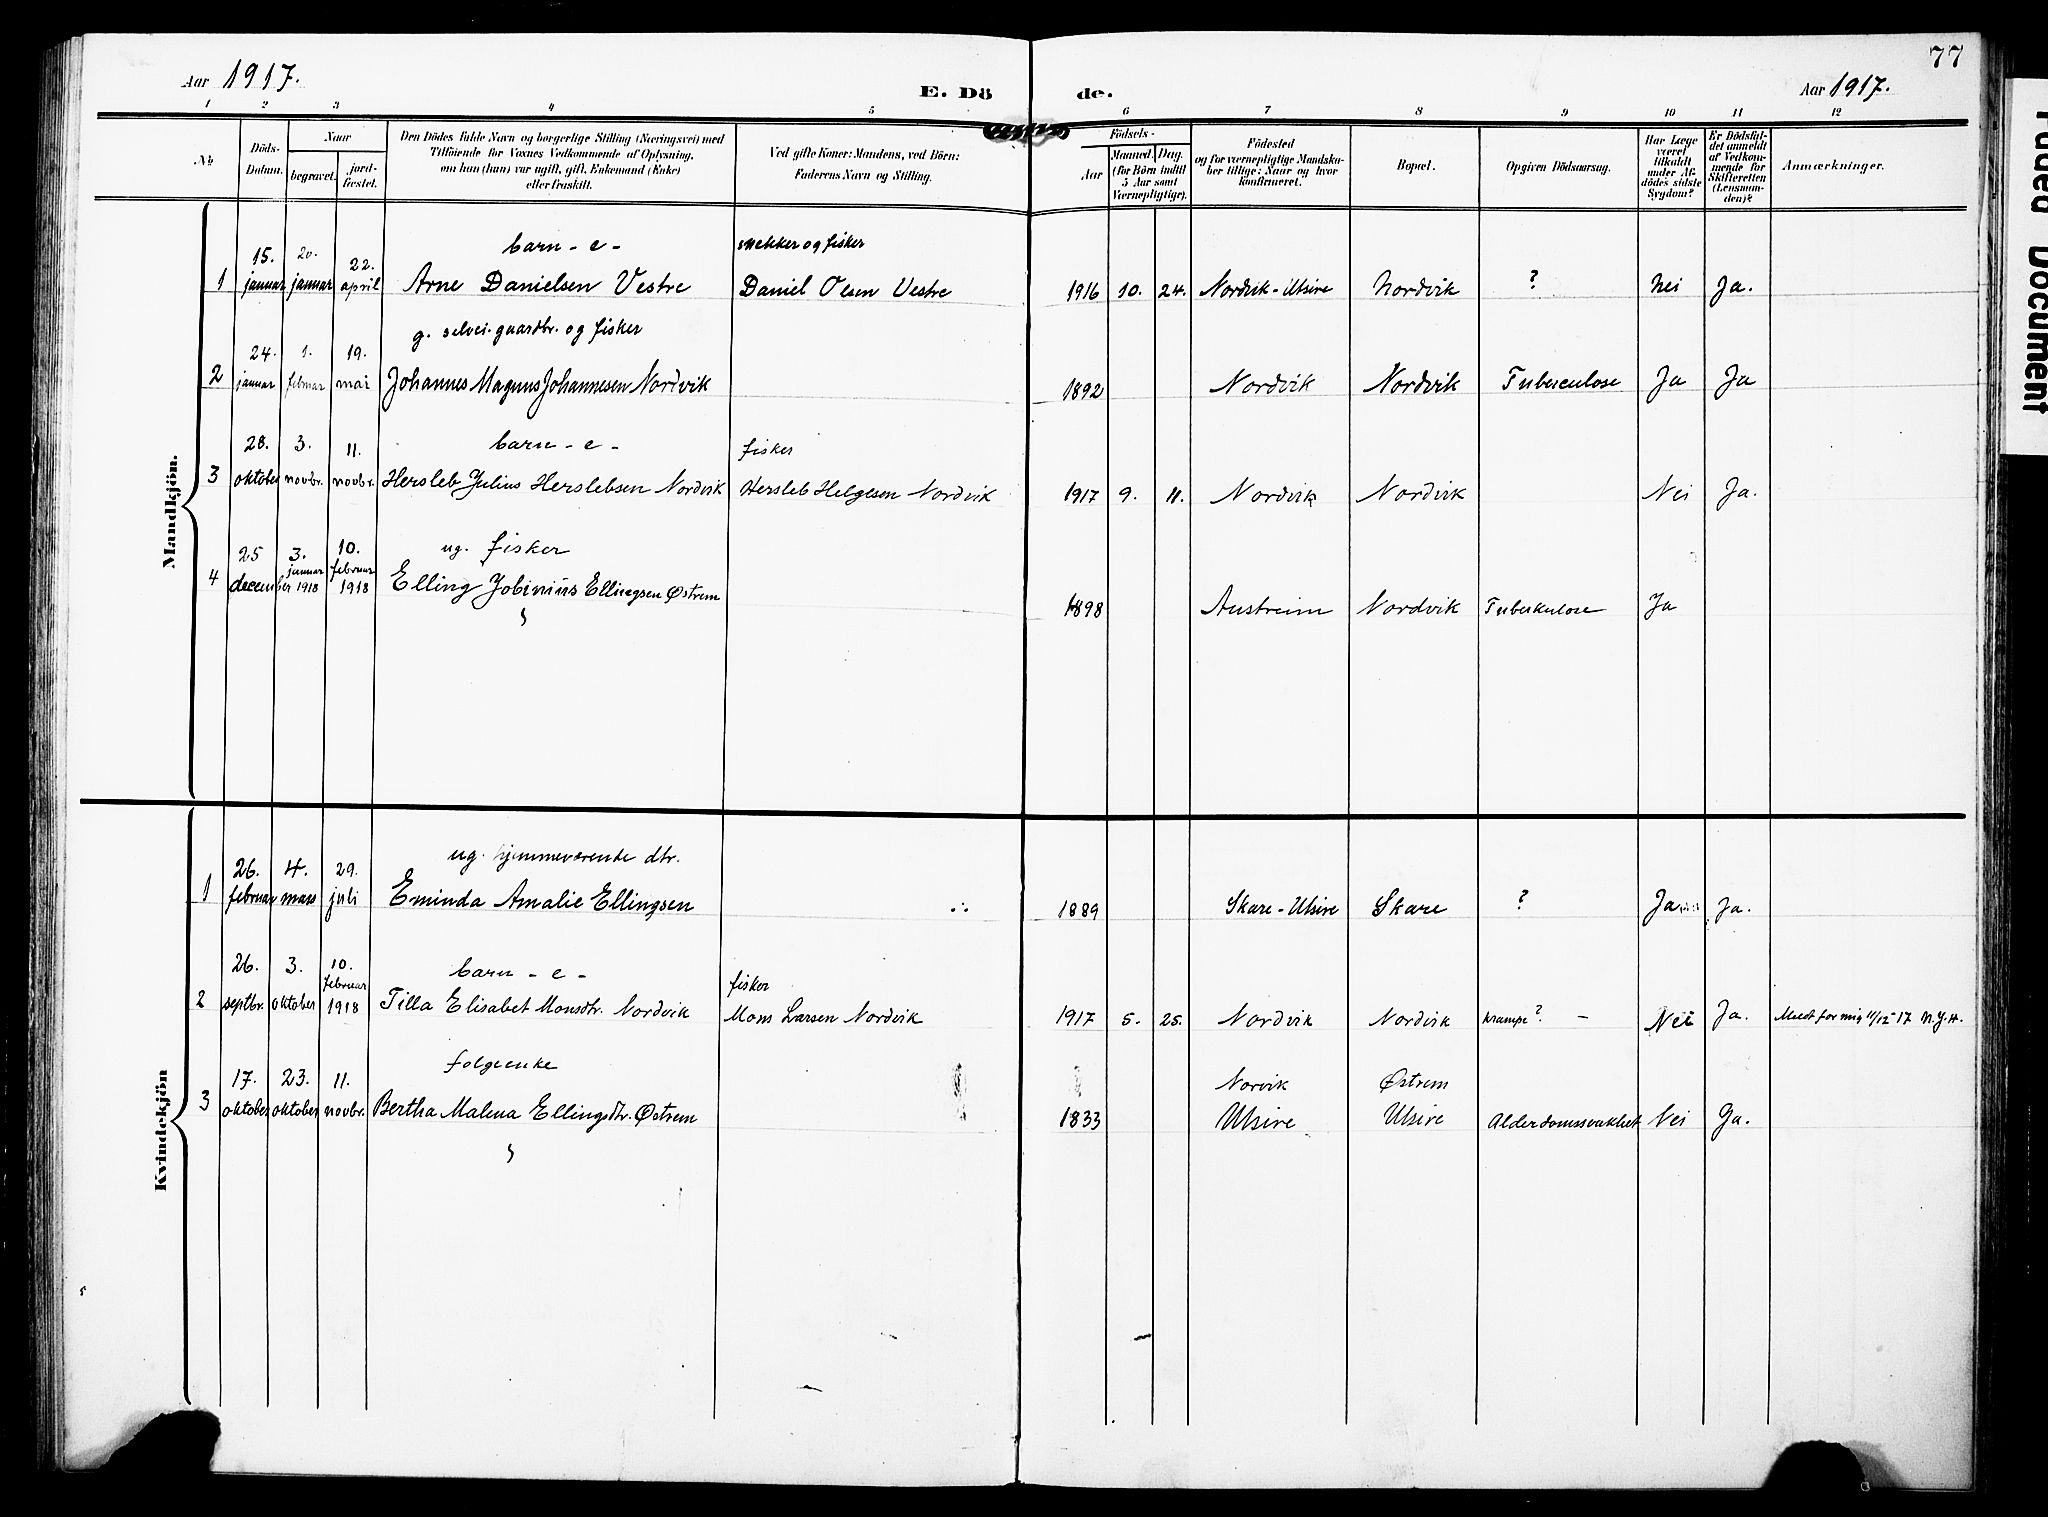 77
Aar 1917.
E. Dö de.
Aar 1917.
1 2 3 4 5 6 7 8 9 10 11 12
No.
Döds-Datum.
Naar
begravet.
jord-fæstet.
Den Dödes fulde Navn og borgerlige Stilling (Næringsvei) med
Tilföiende for Voxnes Vedkommende af Oplysning,
om han (hun) var ugift, gift, Enkemand (Enke)
eller fraskilt.
Ved gifte Koner: Mandens, ved Börn:
Faderens Navn og Stilling.
Födsels-
Aar
Maaned. Dag.
(for Börn indtil
5 Aar samt
Værnepligtige).
Födested
og for værnepligtige Mandska-
ber tillige: Naar og hvor
konfirmeret.
Bopæl.
Opgiven Dödsaarsag.
Har Læge
været
tilkaldt
under Af-
dödes sidste
Sygdom?
Er Dödsfal-
det anmeldt
af Vedkom-
mende for
Skifteretten
(Lensman-
den)?
Anmærkninger.
Mandkjön.
barn - e -
snekker og fisker
1 15. januar 20. januar 22. april Arne Danielsen Vestre Daniel Olsen Vestre 1916 10. 24. Nordvik - Utsire Nordvik ? Nei Ja.
g. selvei. gaardbr. og fisker
2 24. januar 1. februar 19. mai Johannes Magnus Johannesen Nordvik 1892 Nordvik Nordvik Tuberculose Ja Ja
barn - e -
fisker
3 28. oktober 3. novbr. 11. novbr. Hersleb Julius Herslebsen Nordvik Hersleb Helgesen Nordvik 1917 9. 11. Nordvik Nordvik Nei Ja.
ug. fisker
4 25 december 3. januar 1918 10. februar 1918 Elling Jobinius Ellingsen Østrem 1898 Austreim Nordvik Tuberkulose Ja
Kvindekjön
ug. hjemmeværende dtr.
1 26. februar 4. mars 29. juli Eminda Amalie Ellingsen 1889 Skare - Utsire Skare ? Ja Ja.
barn - e -
fisker
2 26. septbr. 3. oktober 10. februar 1918 Tilla Elisabet Monsdtr. Nordvik Mons Larsen Nordvik 1917 5. 25. Nordvik Nordvik krampe? - Nei Ja. Meldt for mig 11/12 17 N.J.H.
folgeenke
3 17. oktober 23. oktober 11. novbr. Bertha Malena Ellingsdtr. Østrem 1833 Norvik Utsire Østrem Utsire Alderdomssvakhet Nei Ja.
Faded Document